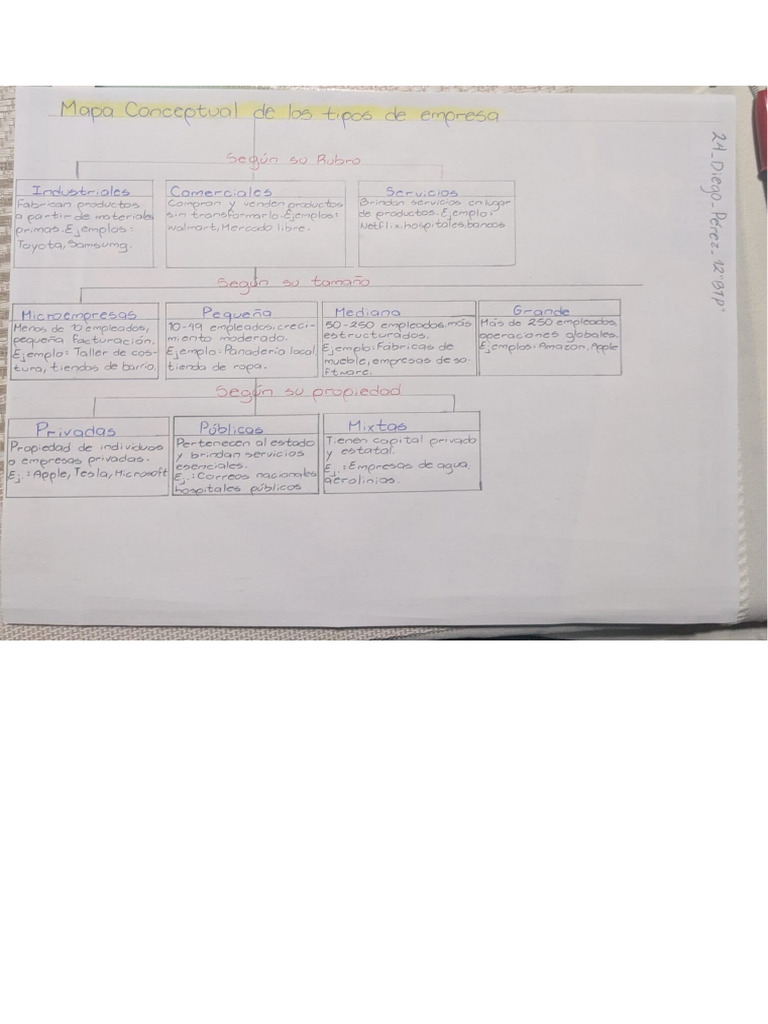 Mapa Conceptual de los tipos de empresa
Según su Rubro
Industriales
Fabrican productos
a partir de materiales
primas. Ejemplos:
Toyota, Samsumg.
Comerciales
Compran y venden productos
sin transformarlo. Ejemplos:
walmart, Mercado libre.
Servicios
Brindan servicios en lugar
de productos. Ejemplo:
Netflix, hospitales, bancos
Según su tamaño
Microempresas
Menos de 10 empleados,
pequeña facturación.
Ejemplo: Taller de cos-
tura, tiendas de barrio.
Pequeña
10-49 empleados, creci-
miento moderado.
Ejemplo: Panadería local,
tienda de ropa.
Mediana
50-250 empleados, más
estructurados.
Ejemplo: Fábricas de
mueble, empresas de so-
ftware.
Grande
Más de 250 empleados,
operaciones globales.
Ejemplos: Amazon, Apple
Según su propiedad
Privadas
Propiedad de individuos
o empresas privadas.
Ej.: Apple, Tesla, Microsoft
Públicas
Pertenecen al estado
y brindan servicios
esenciales.
Ej.: Correos nacionales
hospitales públicos
Mixtas
Tienen capital privado
y estatal.
Ej.: Empresas de agua,
aerolinias.
21_Diego_Pérez_12°BTP"